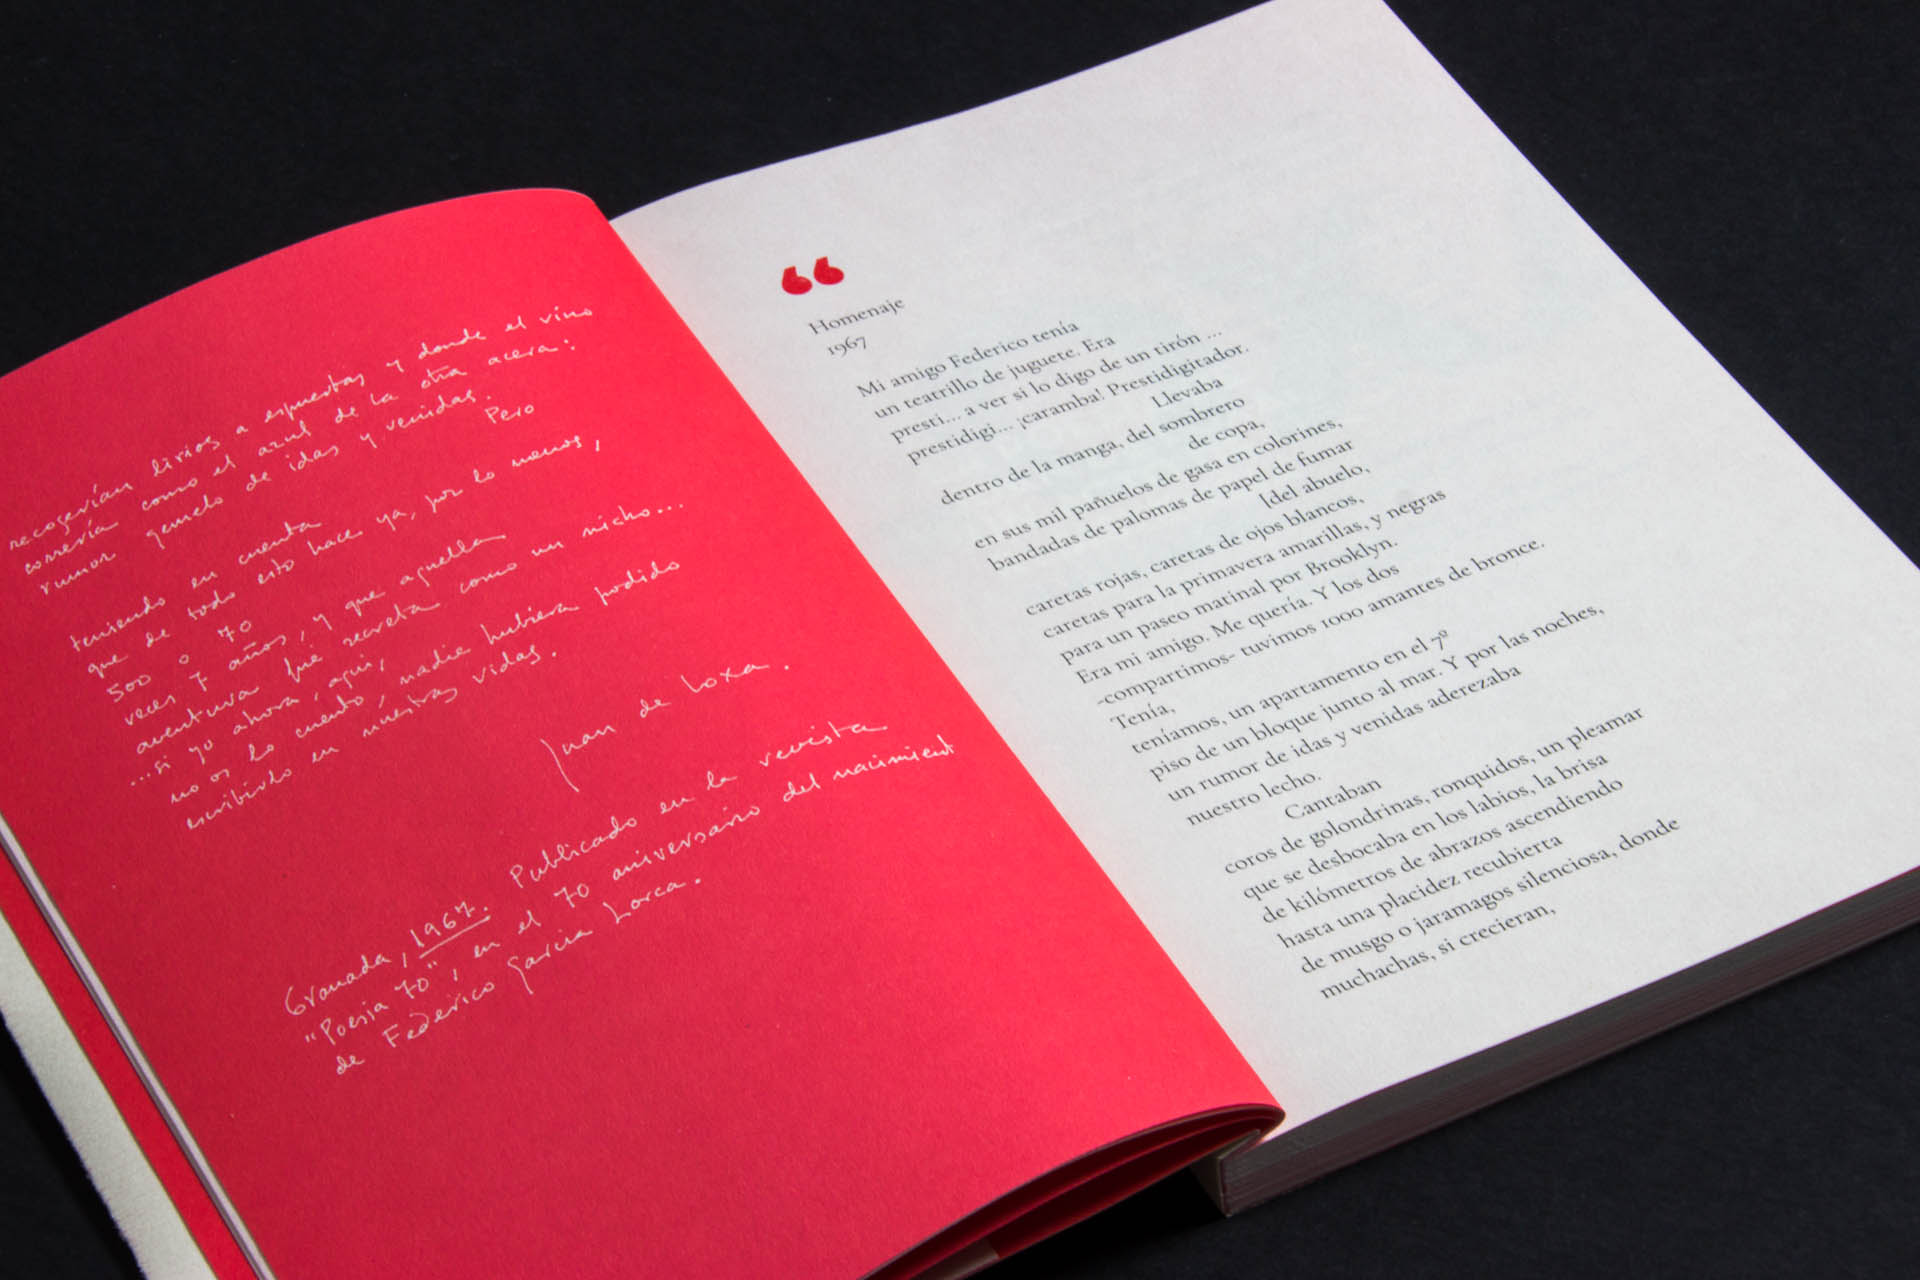 recogerían lirios a espuertas y donde el vino
correría como el azul de la otra acera:
rumor gemelo de idas y venidas.
Pero
teniendo en cuenta
que de todo esto hace ya, por lo menos,
500 o 70
veces 7 años, y que aquella
aventura fué secreta como un nicho...
...si yo ahora, aquí,
no os lo cuento, nadie hubiera podido
escribirlo en nuestras vidas.
Juan de Loxa.
Granada, 1967. Publicado en la revista
"Poesía 70", en el 70 aniversario del nacimient
de Federico García Lorca.
“
Homenaje
1967
Mi amigo Federico tenía
un teatrillo de juguete. Era
presti... a ver si lo digo de un tirón ...
prestidigi... ¡caramba! Prestidigitador.
Llevaba
dentro de la manga, del sombrero
de copa,
en sus mil pañuelos de gasa en colorines,
bandadas de palomas de papel de fumar
[del abuelo,
caretas rojas, caretas de ojos blancos,
caretas para la primavera amarillas, y negras
para un paseo matinal por Brooklyn.
Era mi amigo. Me quería. Y los dos
-compartimos- tuvimos 1000 amantes de bronce.
Tenía,
teníamos, un apartamento en el 7º
piso de un bloque junto al mar. Y por las noches,
un rumor de idas y venidas aderezaba
nuestro lecho.
Cantaban
coros de golondrinas, ronquidos, un pleamar
que se desbocaba en los labios, la brisa
de kilómetros de abrazos ascendiendo
hasta una placidez recubierta
de musgo o jaramagos silenciosa, donde
muchachas, si crecieran,